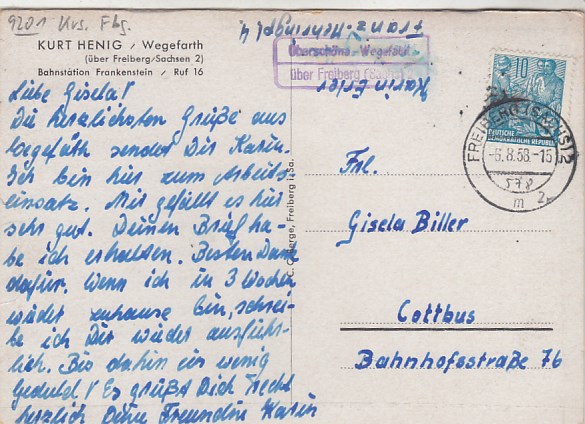 9201 Krs. Fbg.
KURT HENIG / Wegefarth
(über Freiberg/Sachsen 2)
Bahnstation Frankenstein / Ruf 16
Liebe Gisela!
Die herzlichsten Grüße aus
Wegefarth sendet Dir Karin.
Ich bin hier zum Arbeits
einsatz. Mir gefällt es hier
sehr gut. Deinen Brief ha-
be ich erhalten. Besten Dank
dafür. Wenn ich in 3 Wochen
wieder zuhause bin, schrei-
be ich Dir wieder ausführ-
lich. Bis dahin ein wenig
Geduld! Es grüßt Dich recht
herzlich Deine Freundin Karin
Karin
Franz-Mehringpl. 4
Überschöna-Wegefarth
über Freiberg (Sachs)
10
DEUTSCHE
DEMOKRATISCHE REPUBLIK
FREIBERG (SACHS) 2
-6.8.58.-15
m
Frl.
Gisela Biller
Cottbus
Bahnhofsstraße 76
Freiberg i. Sa.